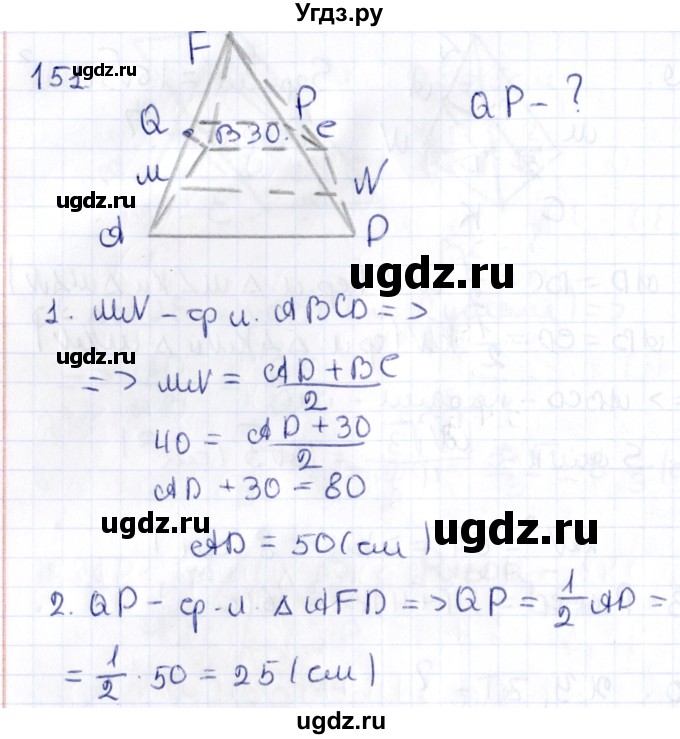 Угдз.ру
F
152
ugdz.ru
Q
P
QP - ?
B 30
C
M
N
ugdz.ru
A
D
ugdz.ru
1. MN - ср л. ABCD =>
=> MN = (AD + BC)/2
40 = (AD + 30)/2
AD + 30 = 80
ugdz.ru
AD = 50 (см)
ugdz.ru
2. QP - ср. л. △ AFD => QP = 1/2 AD =
= 1/2 · 50 = 25 (см)
ugdz.ru
ugdz.ru